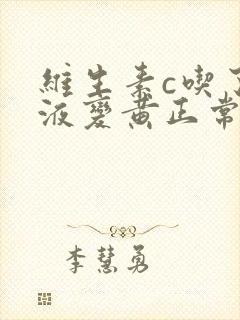 維生素c喫了
液變黃正常
李慧勇